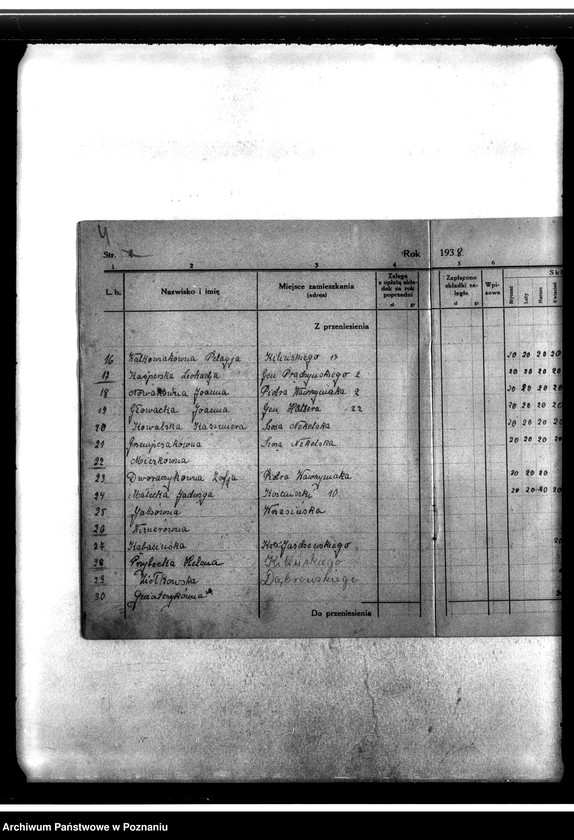 4
Str.
Rok 1938
1 2 3 4 5 6
L. b. Nazwisko i imię Miejsce zamieszkania (adres) Zaległ. z opłatą skła-dek za rok poprzedni zł gr Zapłacono składki za-ległe zł gr Wpi-sowe Styczeń Luty Marzec Kwiecień
Z przeniesienia
16 Walkowiakówna Pelagja Kilińskiego 13 20 20 20 20
17 Kasperska Leokadja Gen Prądzyńskiego 2 20 20 20 20
18 Nowakówna Joanna Piotra Wawrzyniaka 2 20 20 20 20
19 Głowacka Joanna Gen Hallera 22 20 20 20 20
20 Kowalska Kazimiera Szosa Nekolska 20 20 20 20
21 Szosa Nekolska 20 20 20 20
22 Mierkówna
23 Zofja Piotra Wawrzyniaka 20 20 20
24 Malecka Jadwiga Kościuszki 10 20 20 40 20
25 Wrzesińska
26
27 Kabacińska
28 Przybecka Helena Kilińskiego
29 Ziółkowska Dąbrowskiego
30
Do przeniesienia
Archiwum Państwowe w Poznaniu